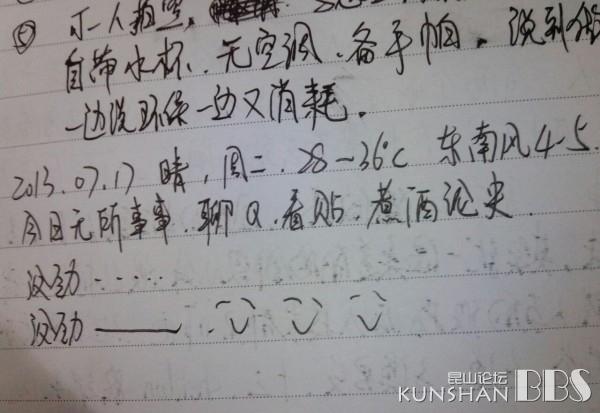 ⑤
自带水杯、无空调、备手帕。说到
一边说环保一边又消耗。
2013.07.17 晴,周二、28-36℃ 东南风4-5.
今日无所事事、聊Q、看贴、煮酒论史.
没劲······
没劲——
昆山论坛
KUNSHAN BBS